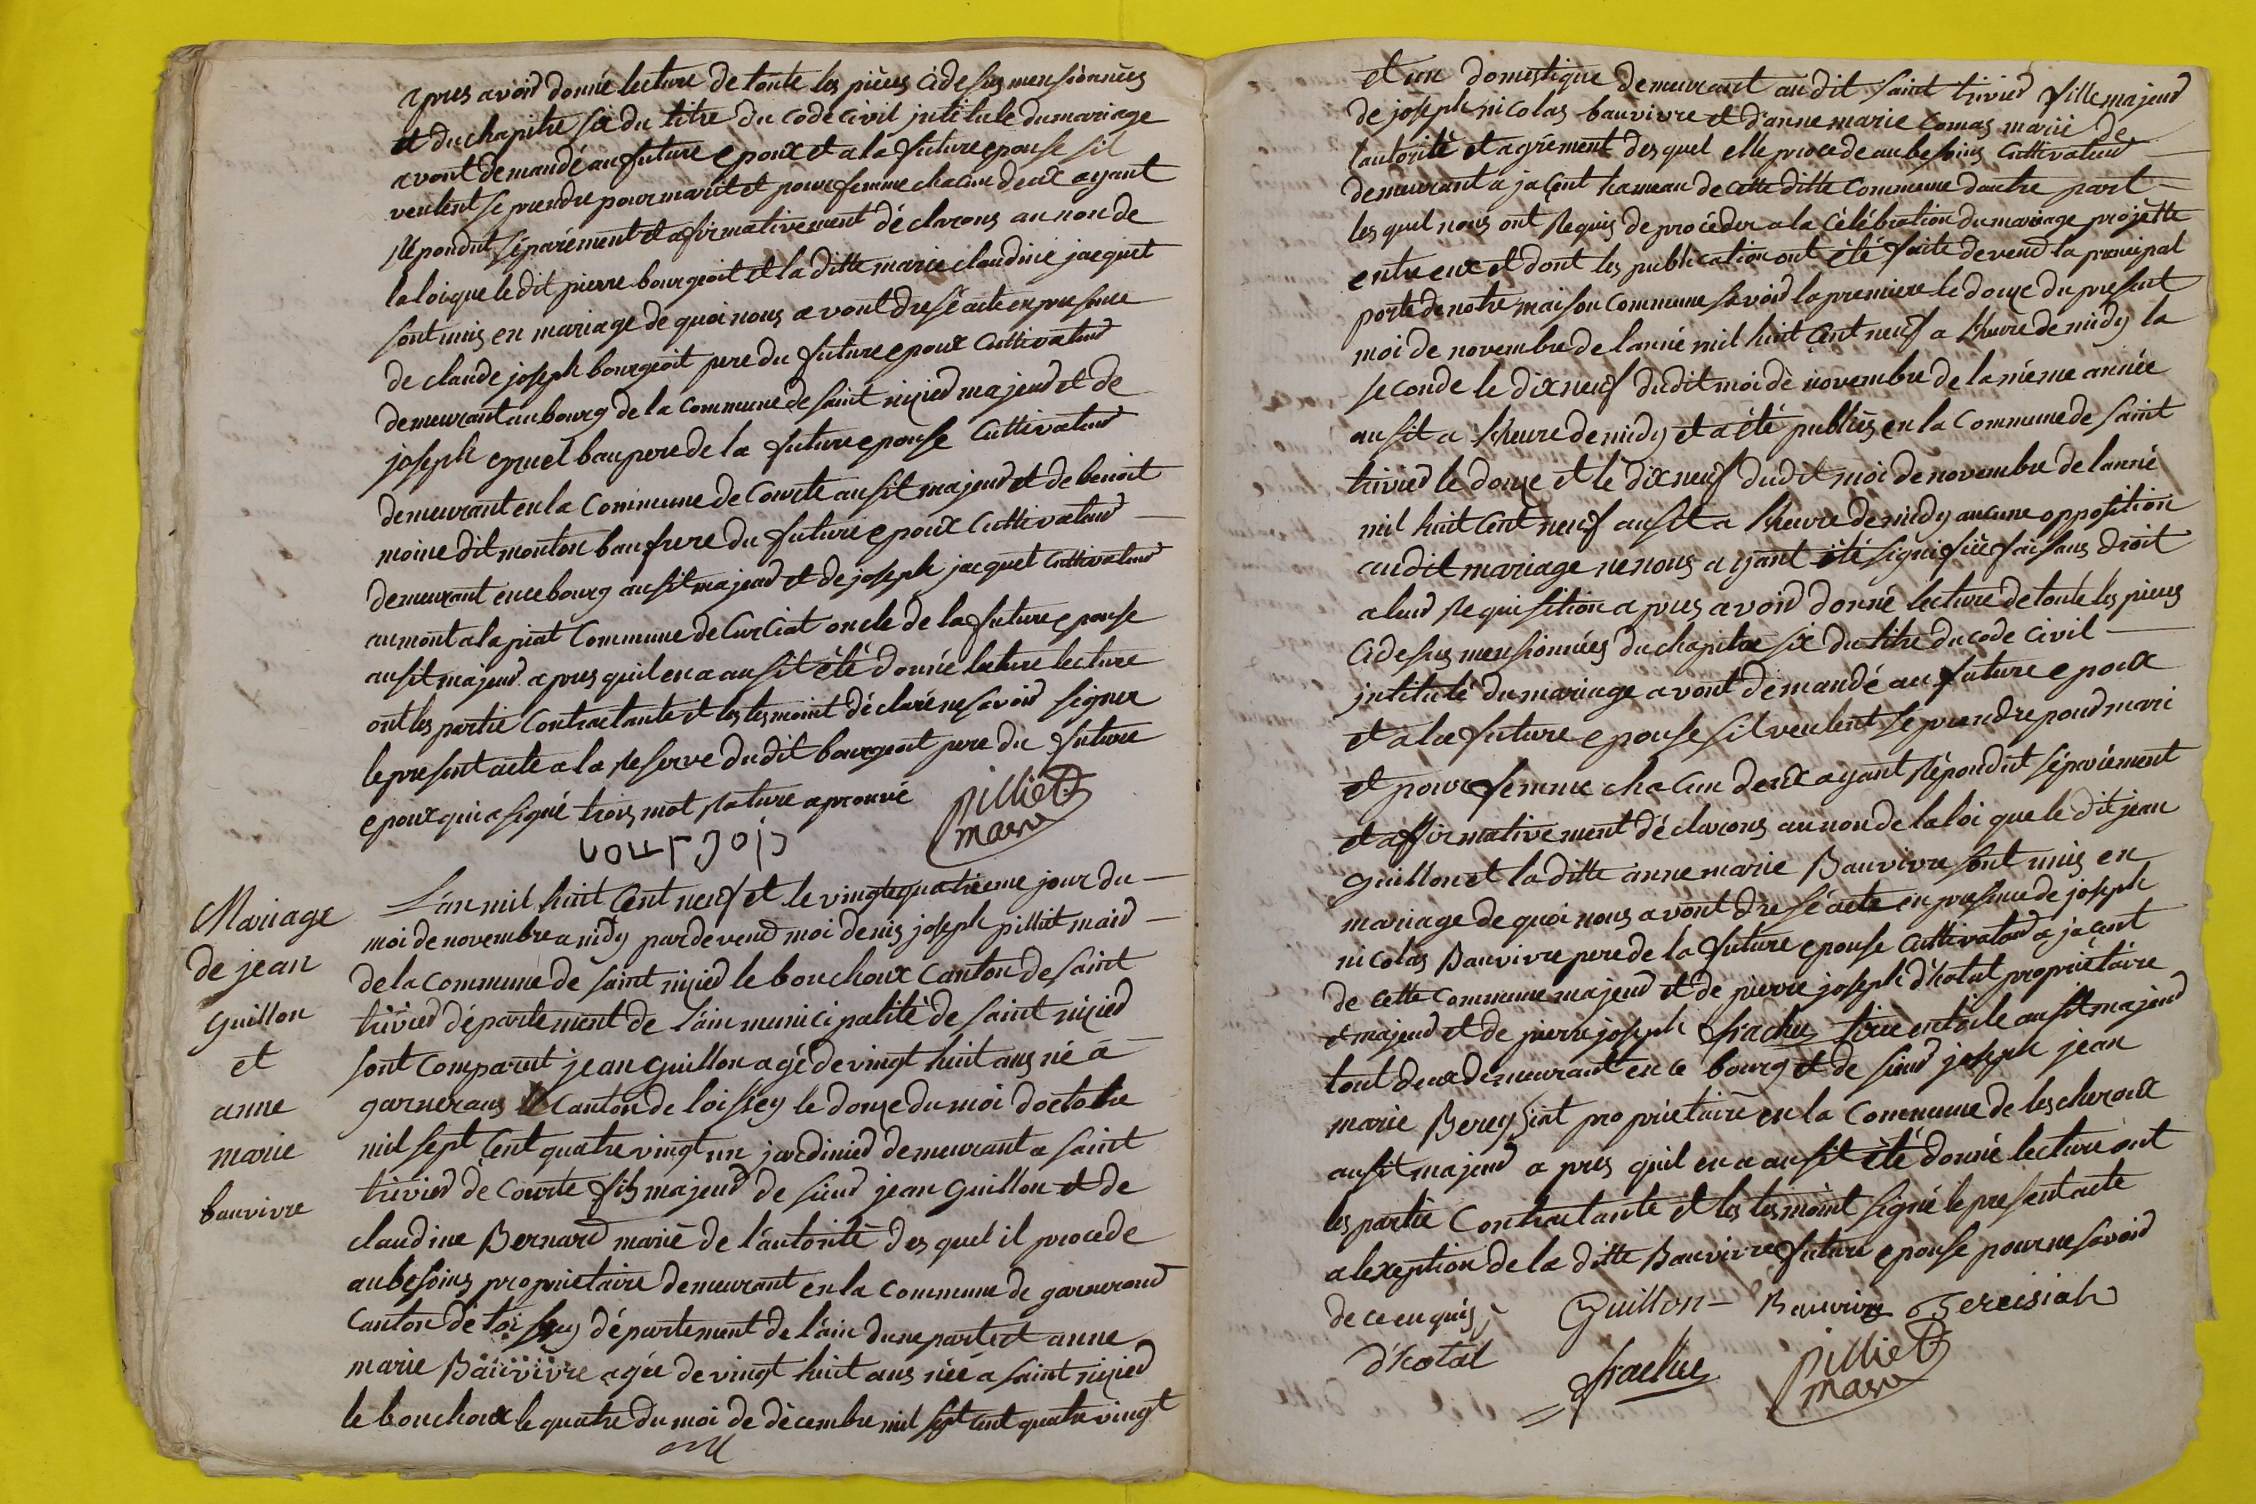 apres avoir donné lecture de toute les pièces cidesus mensionnées
et du chapitre six du titre du code civil intitulé du mariage
avont demandé au future epoux et a la future epouse sil
veulent se prendre pour marit et pour femme chacun deux ayant
répondut séparément et afirmativement déclarons au non de
la loi que le dit pierre bourgeoit et la ditte marie claudine jacquet
sont unis en mariage de quoi nous avont dresé acte en presence
de claude joseph bourgeoit pere du future epoux cultivateur
demeurant au bourg de la commune de saint nizier majeur et de
joseph bau pere de la future epouse cultivateur
demeurant en la commune de Courte ausit majeur et de benoit
moine dit monton bau frere du future epoux cultivateur
demeurant en ce bourg ausit majeur et de joseph jacquet cultivateur
au mont a la piat Commune de Curciat oncle de la future epouse
ausit majeur apres quil en a ausit été donnée lecture lecture
ont les partie contractante et les tesmoint déclaré ne savoir signer
le present acte a la reserve du dit bourgeoit pere du future
epoux qui a signé trois mot rature aprouvé
pilliet
maire
bourjois
Mariage
de jean
guillon
et
anne
marie
bauvivre
L'an mil huit cent neuf et le vingtquatrieme jour du
moi de novembre a midy pardeveud moi denis joseph pilliet maire
de la commune de saint nizier le bouchoux canton de saint
trivier département de l'ain municipalité de saint nizier
sont comparut jean guillon agé de vingt huit ans né a
garnerans canton de loissey le douze du moi doctobre
mil sept cent quatre vingt un jardinier demeurant a saint
trivier de courte fils majeur de sieur jean guillon et de
claudine Bernard marié de l'autorité des quel il procede
au besoins proprietaire demeurant en la commune de garnerand
canton de toissey département de l'ain dune part et anne
marie Bauvivre agée de vingt huit ans née a saint nizier
le bouchoux le quatre du moi de décembre mil sept cent quatre vingt
et un domestique demeurant au dit saint trivier fille majeur
de joseph nicolas bauvivre et d'anne marie comas marié de
l'autorité et agrément des quel elle procede au besoins cultivateur
demeurant a jaçent hameau de cette ditte commune dautre part
les quel nous ont requis de procéder a la célébration du mariage projetté
entre eux et dont les publication ont été faite deveud la principal
porte de notre maison commune savoir la premiere le douze du present
moi de novembre de lanné mil huit cent neuf a lheure de midy la
seconde le dix neuf dudit moi de novembre de la même année
ausit a lheure de midy et a été publiés en la commune de saint
trivier le douze et le dix neuf dudit moi de novembre de lanné
mil huit cent neuf ausit a lheure de midy aucune opposition
audit mariage ne nous ayant été signifiée faisans droit
a leur requisition apres avoir donné lecture de toute les pieces
cidesus mensionnées du chapitre six du titre du code civil
intitulé du mariage avont demandé au future epoux
et a la future epouse sil veulent se prendre pour mari
et pour femme chacun deux ayant répondut séparément
et affirmativement déclarons au non de la loi que le dit jean
guillon et la ditte anne marie Bauvivre sont unis en
mariage de quoi nous avont dresé acte en presence de joseph
nicolas Bauvivre pere de la future epouse cultivateur a jaçent
de cette commune majeur et de pierre joseph d'hotal propriétaire
et majeur et de pierre joseph frachu ausit majeur
tout deux demeurant en ce bourg et de sieur joseph jean
marie Bereyziat proprietaire en la commune de lescheroux
ausit majeur apres quil en a ausit été donné lecture ont
les partie contractante et les tesmoint signé le present acte
a lexeption de la ditte Bauvivre future epouse pour ne savoir
de ce enquis
Guillon Bauvivre Bereisiah
d'hotal
frachu
pilliet
maire